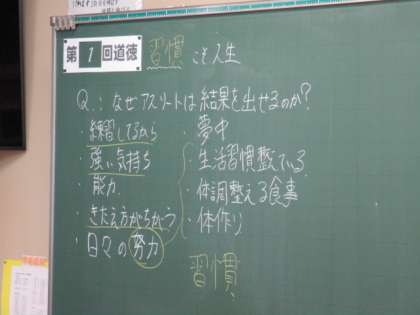 第1回道徳 習慣こそ人生
Q.:なぜアスリートは結果を出せるのか?
・練習してるから
・強い気持ち
・能力
・きたえ方がちがう
・日々の努力
・夢中
・生活習慣整えている
・体調整える食事
・体作り
習慣